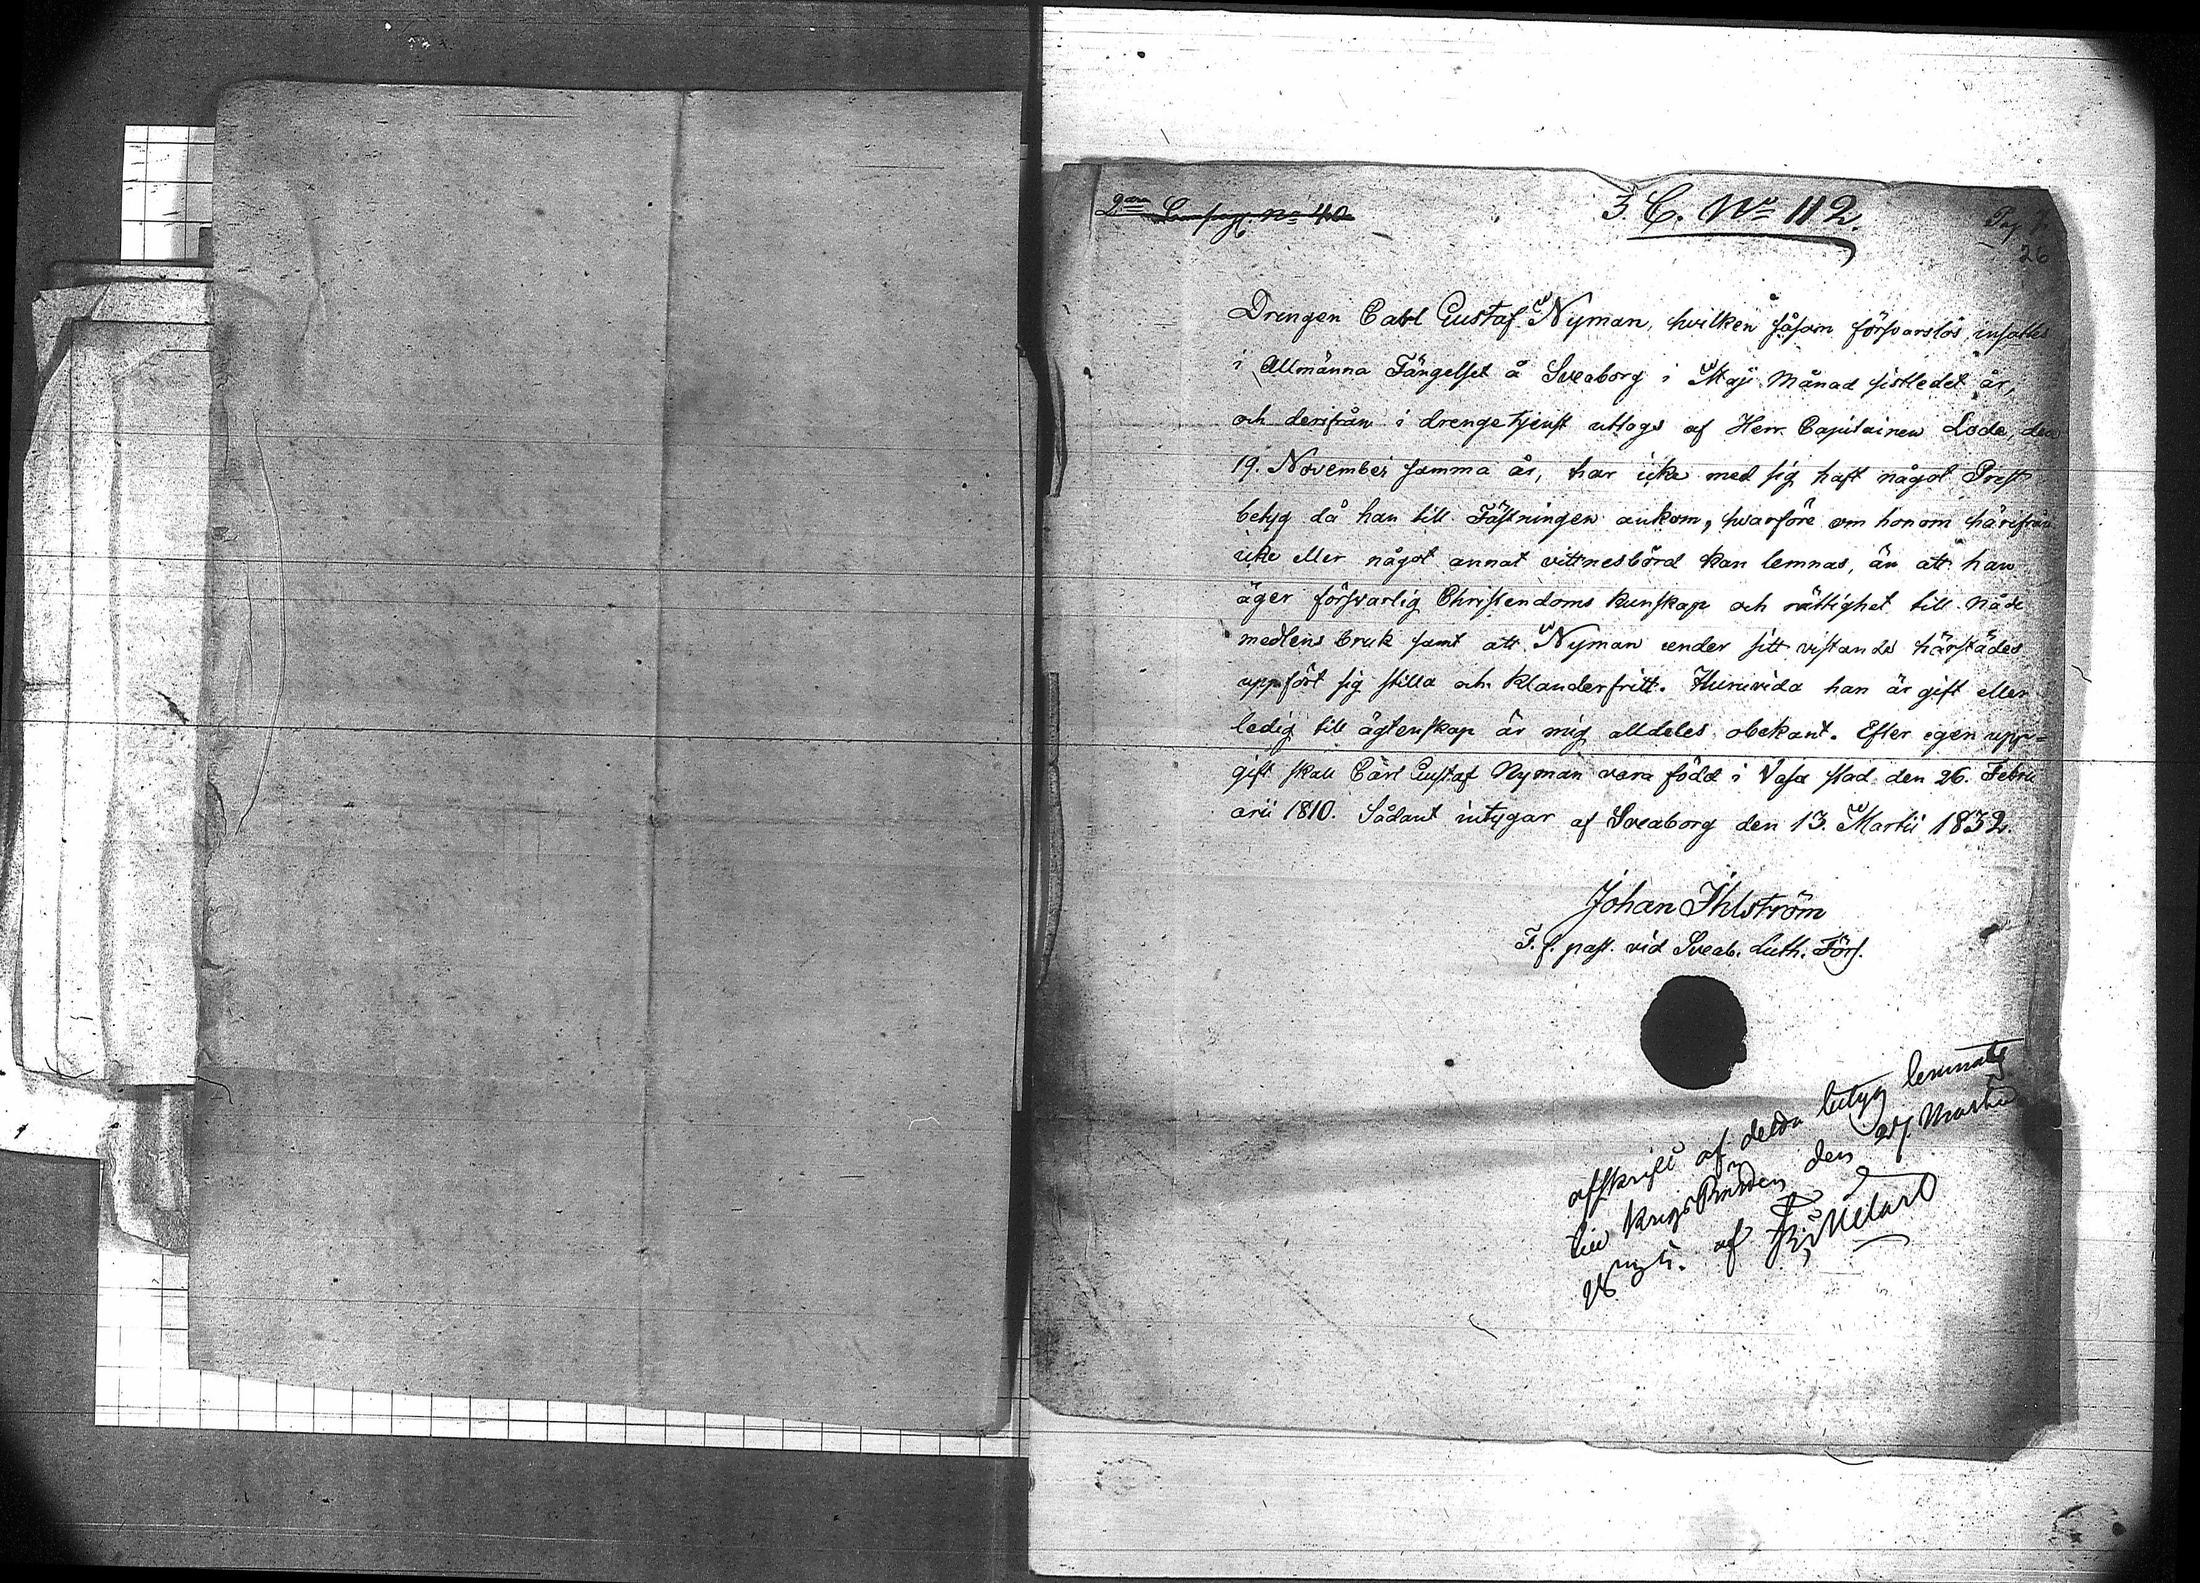 3. C. No 112.
26
Drengen Carl Gustaf Nyman, hvilken såsom försvarslös insattes
i Allmänna Fängelset å Sveaborg i Maji Månad sistledet år,
och derifrån i drengetjenst uttogs af Herr Capitainen Lode, den
19. November samma år, har icke med sig haft något Prest
betyg då han till Fästningen ankom, hvarföre om honom härifrån
icke eller något annat vittnesbörd kan lemnas, än att han
äger försvarlig Christendoms kunskap och rättighet till nåde
medlens bruk samt att Nyman under sitt vistande härstädes
uppfört sig stilla och klanderfritt. Huruvida han är gift eller
ledig till ägtenskap är mig alldeles obekant. Efter egen upp=
gift skall Carl Gustaf Nyman vara född i Vasa stad den 26. Febru
arii 1810. Sådant intygar af Sveaborg den 13. Martii 1832.
Johan Ihlström
F. f. past. vid Sveab. Luth. Förs.
afskrift af detta betyg lemnats
till den Martii
af